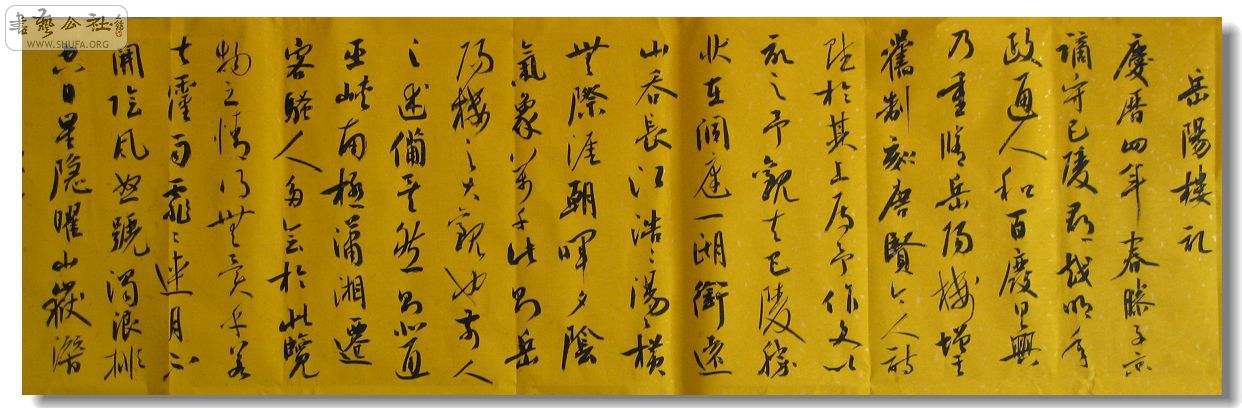 岳陽樓記
慶曆四年春滕子京
謫守巴陵郡越明年
政通人和百廢具興
乃重脩岳陽樓增其
舊制刻唐賢今人詩
賦於其上屬予作文以
記之予觀夫巴陵勝
狀在洞庭一湖銜遠
山吞長江浩〻湯〻橫
無際涯朝暉夕陰
氣象萬千此則岳
陽樓之大觀也前人
之述備矣然則北通
巫峽南極瀟湘遷
客騷人多會於此覽
物之情得無異乎若
夫霪雨霏〻連月不
開陰風怒號濁浪排
空日星隱曜山嶽潛
書藝公社
WWW.SHUFA.ORG